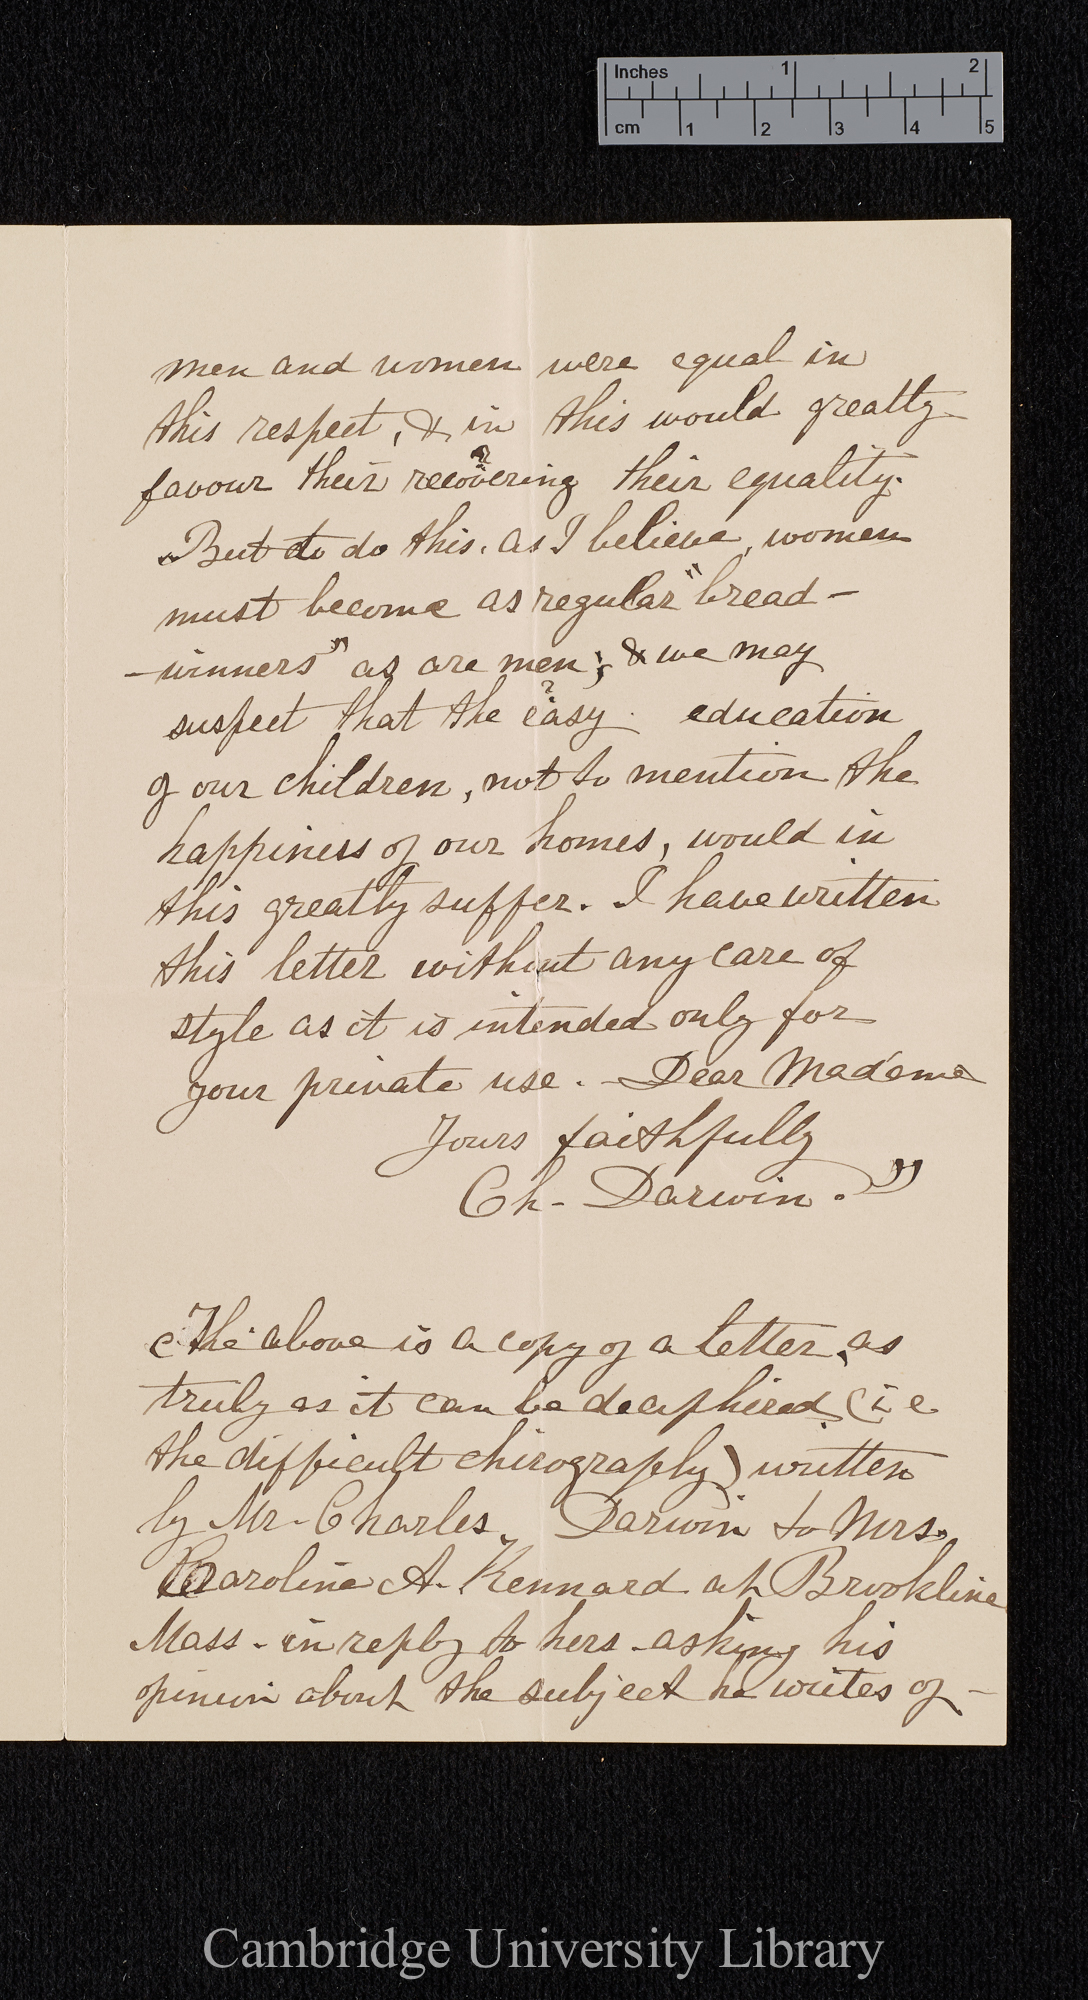 Inches 1 2
cm 1 2 3 4 5
men and women were equal in
this respect, & in this would greatly
favour their recovering their equality.
But to do this, as I believe, women
must become as regular "bread-
-winners" as are men; & we may
suspect that the easy education
of our children, not to mention the
happiness of our homes, would in
this greatly suffer. I have written
this letter without any care of
style as it is intended only for
your private use. - Dear Madame
Yours faithfully
Ch- Darwin."
The above is a copy of a letter, as
truly as it can be deciphired (i e
the difficult chirography) written
by Mr. Charles. Darwin to Mrs.
Caroline A. Kennard at Brookline
Mass - in reply to hers - asking his
opinion about the subject he writes of -
Cambridge University Library